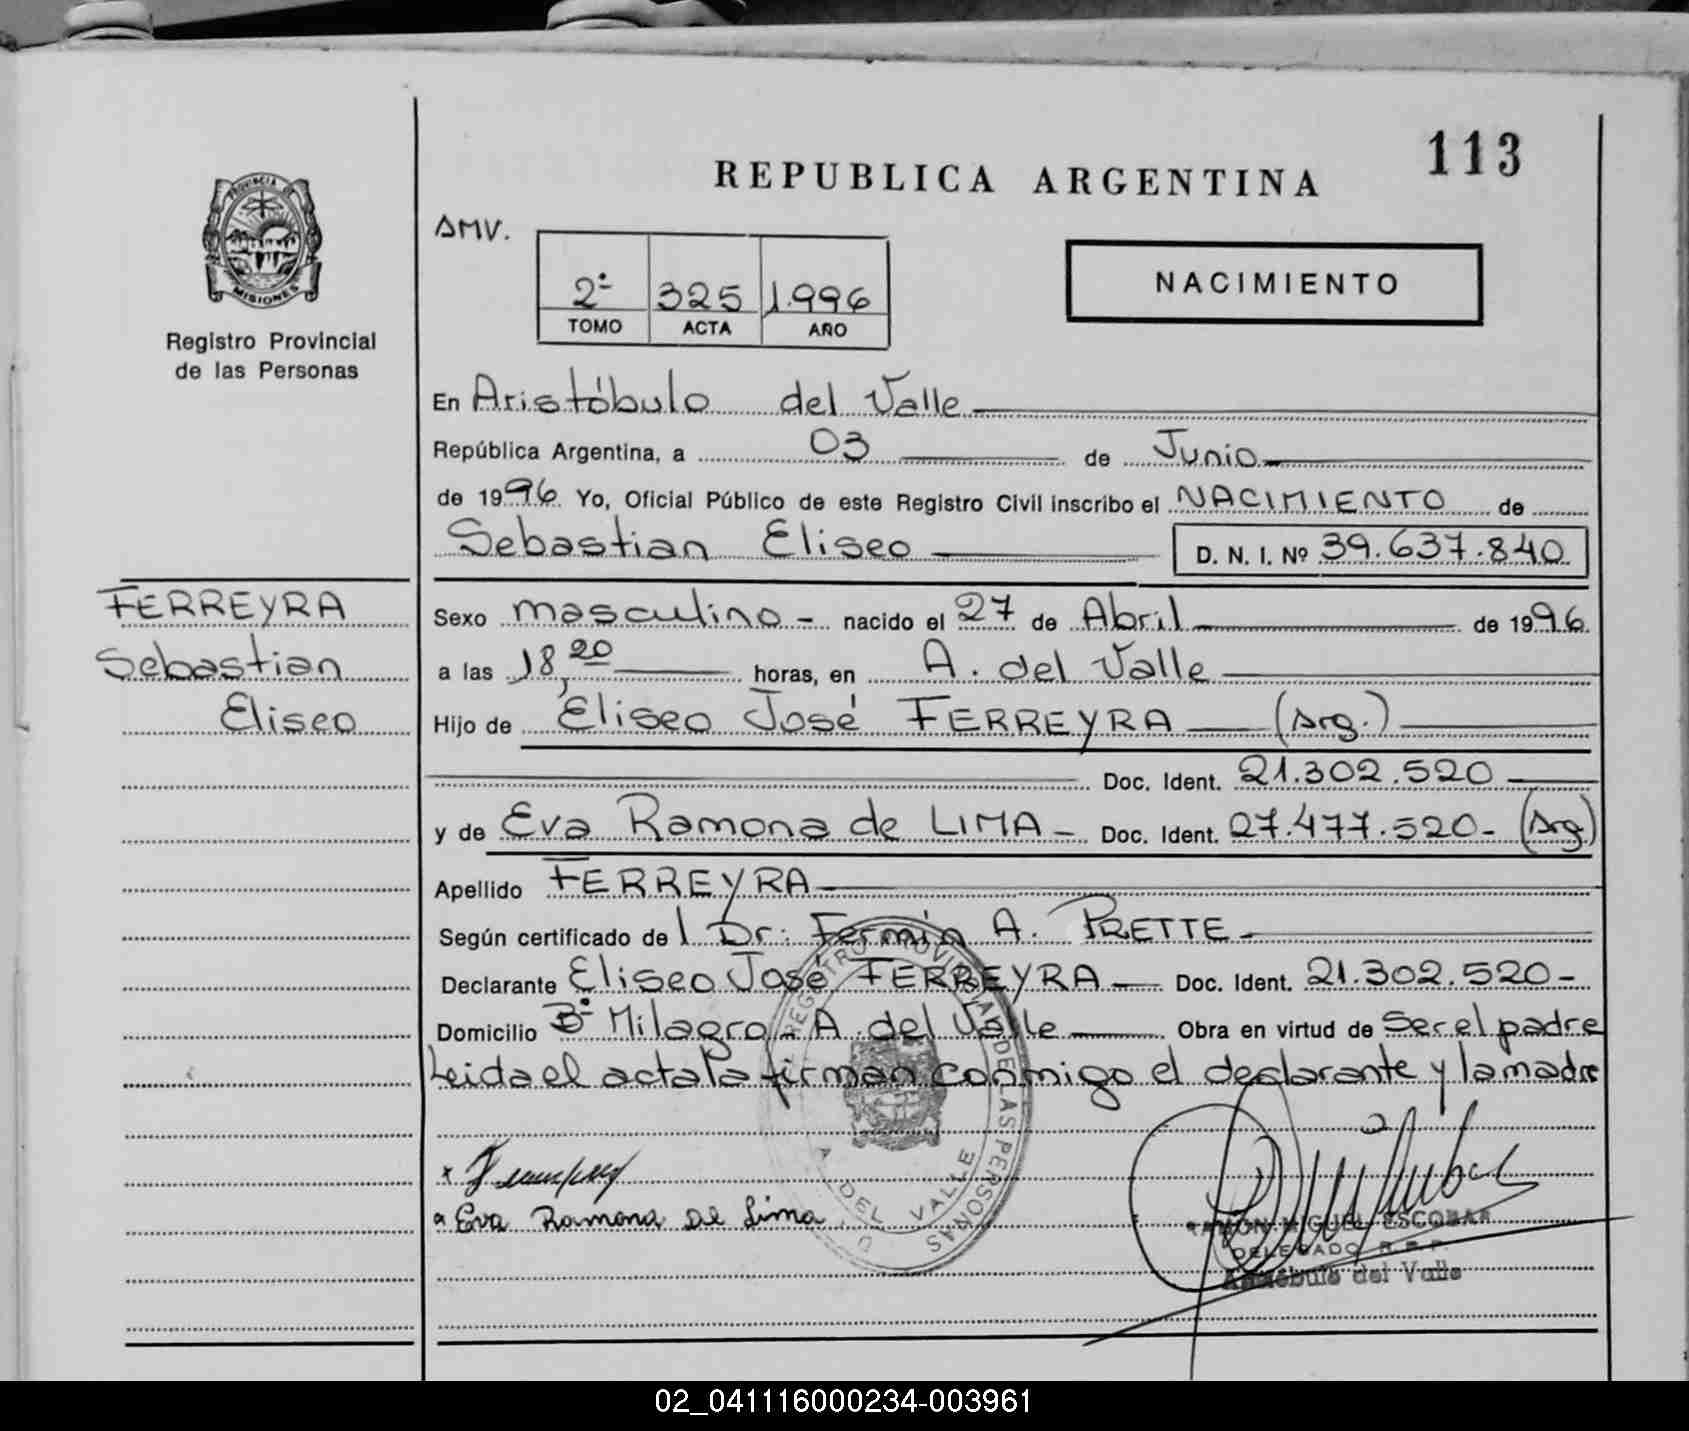 113
REPUBLICA ARGENTINA
PROVINCIA DE
MISIONES
Registro Provincial
de las Personas
AMV.
2º 325 1.996
TOMO ACTA AÑO
NACIMIENTO
En Aristóbulo del Valle
República Argentina, a 03 de Junio
de 1996. Yo, Oficial Público de este Registro Civil inscribo el NACIMIENTO de
Sebastian Eliseo D. N. I. Nº 39.637.840
FERREYRA
Sebastian
Eliseo
Sexo masculino - nacido el 27 de Abril de 1996.
a las 18,20 horas, en A. del Valle
Hijo de Eliseo José FERREYRA (Arg.)
Doc. Ident. 21.302.520
y de Eva Ramona de LIMA - Doc. Ident. 27.477.520- (Arg)
Apellido FERREYRA
Según certificado del Dr: Fermín A. PRETTE.
Declarante Eliseo José FERREYRA - Doc. Ident. 21.302.520-
Domicilio Bº Milagro - A. del Valle Obra en virtud de Ser el padre
Leida el acta la firman conmigo el declarante y la madre
REGISTRO PROVINCIAL DE LAS PERSONAS
A. DEL VALLE
Eva Ramona De Lima
RAMON MIGUEL ESCOBAR
DELEGADO R. P. P.
Aristóbulo del Valle
02_041116000234-003961